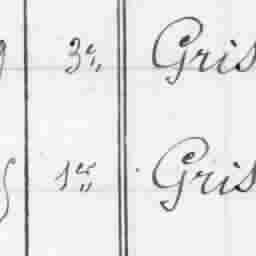 3e,, Gris
1er,, Gris